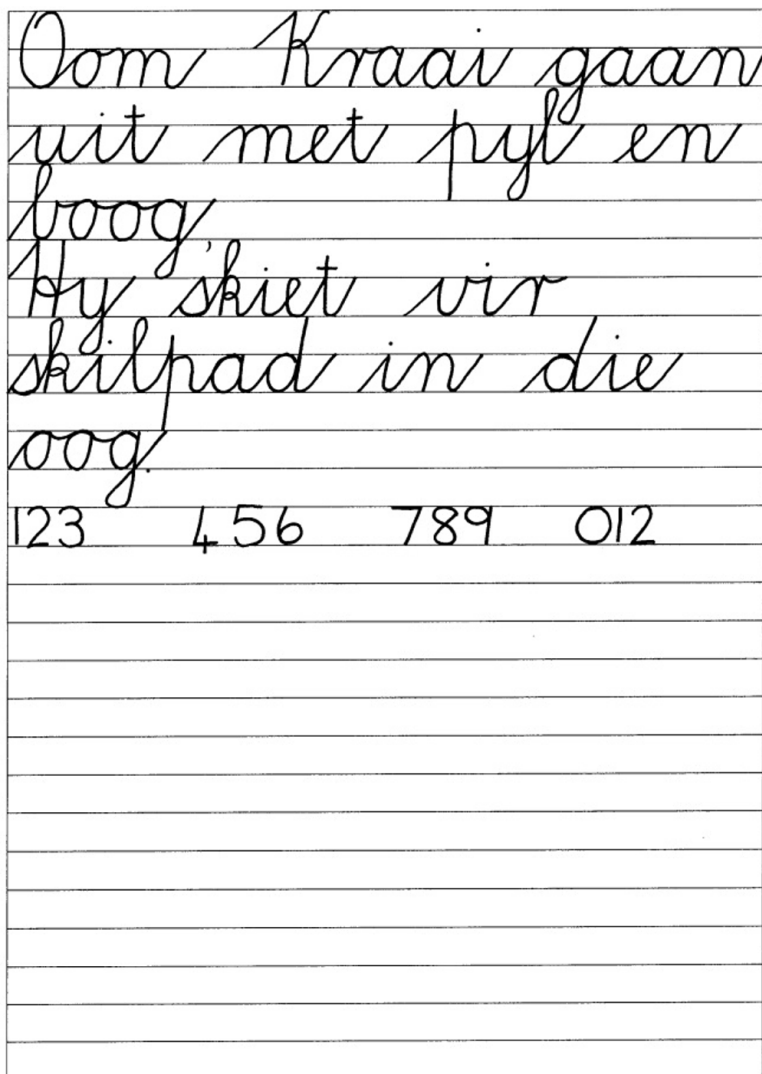 Oom Kraai gaan
uit met pyl en
boog,
Hy skiet vir
skilpad in die
oog.
123 456 789 012